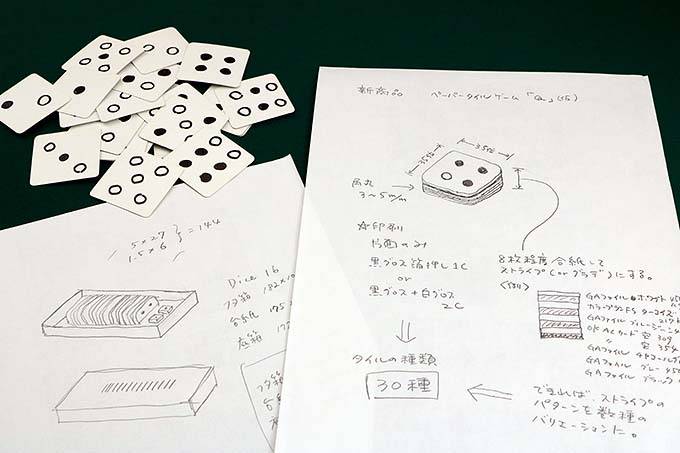 新商品 ペーパータイルゲーム「Qu」(仮)
35㎜
35㎜
角丸
3～5m/m
☆印刷
片面のみ
黒グロス箔押し1C
or
黒グロス+白グロス
2C
8枚程度合紙して
ストライプ(orグラデ)にする。
タイルの種類
30種
できれば、ストライプの
パターンを数種の
バリエーションに。
GAファイル ホワイト 450
GAファイル
OKACカード
GAファイル
GAファイル グレー 450
GAファイル ブラック
5×27
1.5×6
=144
Dice 16
フタ箱
台紙
底箱
フタ箱
台紙